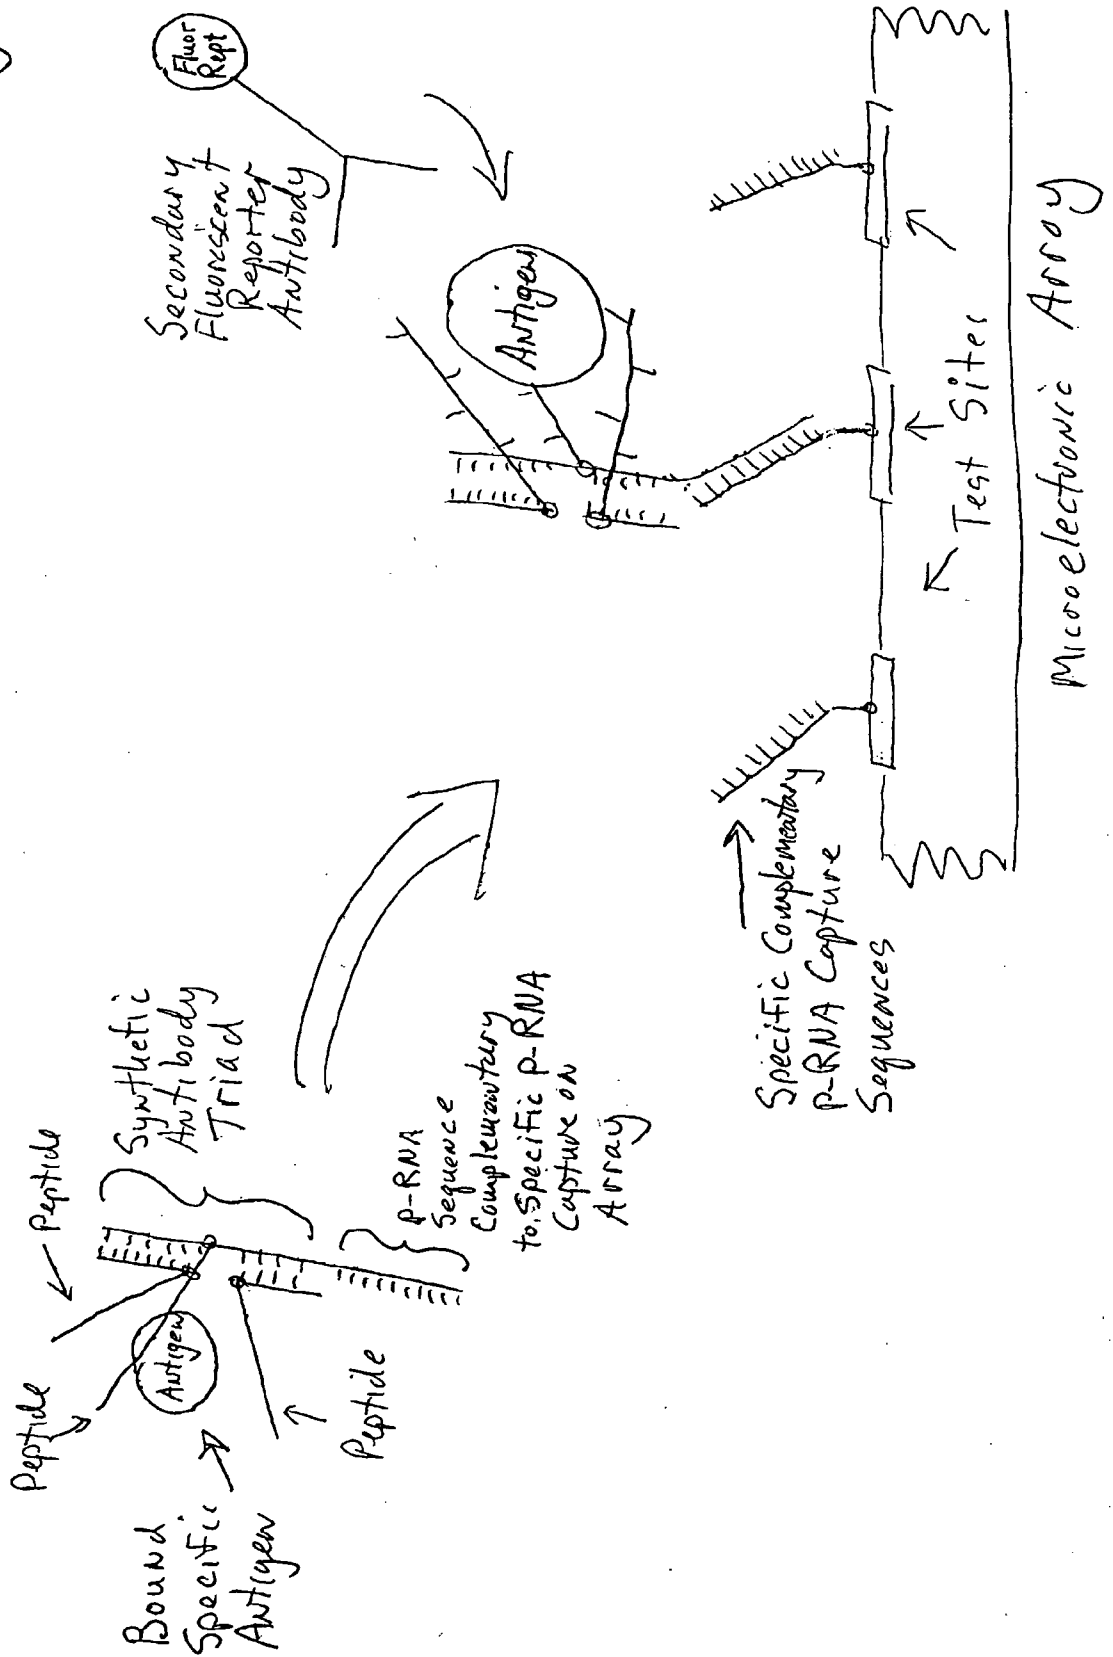 Peptide
Peptide
Antigen
Bound
Specific
Antigen
Peptide
Synthetic
Antibody
Triad
p-RNA
Sequence
Complementary
to Specific p-RNA
Capture on
Array
Secondary
Fluorescent
Reporter
Antibody
Fluor
Rept
Antigen
Specific Complementary
p-RNA Capture
Sequences
Test Sites
Microelectronic Array